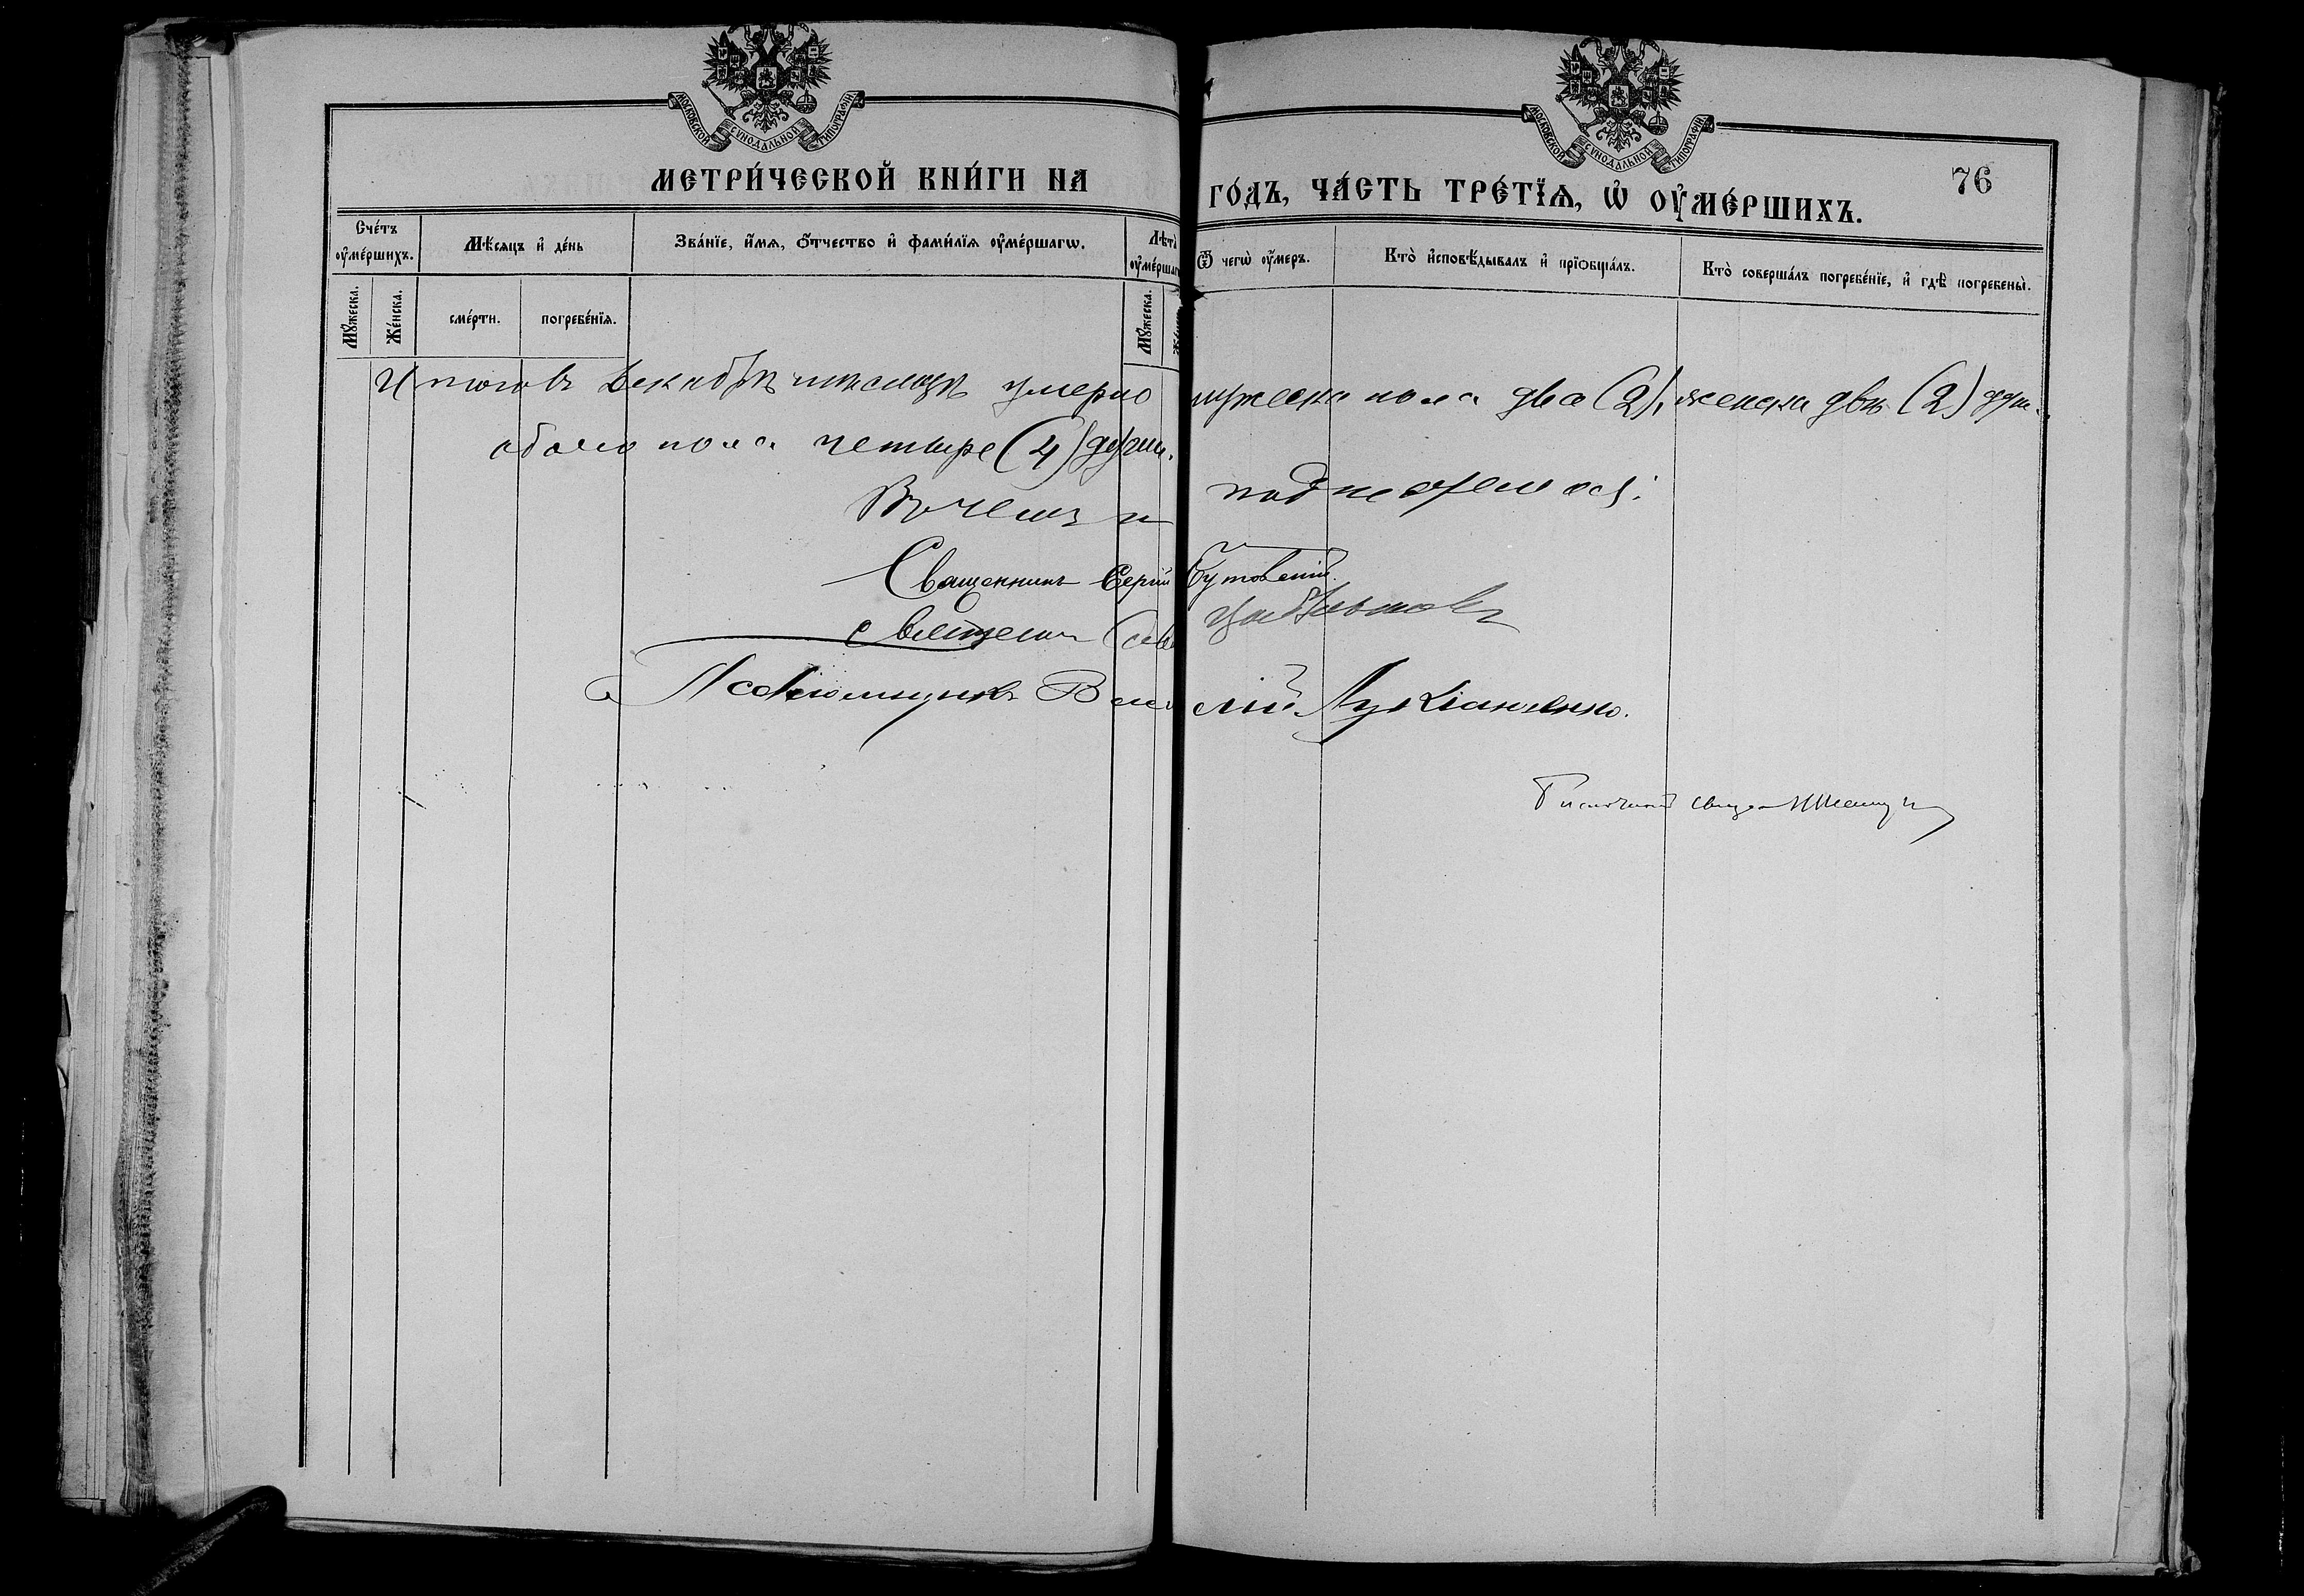 МОСКОВСКОЙ СУНОДАЛЬНОЙ ТИПОГРАФІИ
МОСКОВСКОЙ СУНОДАЛЬНОЙ ТИПОГРАФІИ
76
МЕТРИ́ЧЕСКОЙ КНИ́ГИ НА ГО́ДЪ, ЧА́СТЬ ТРЕ́ТЇѦ, Ѡ҆ ОУ҆МЕ́РШИХЪ.
Сче́тъ оу҆ме́ршихъ.
Мѣ́сѧцъ и҆ де́нь
Зва́нїе, и҆́мѧ, ѻ҆́тчество и҆ фами́лїѧ оу҆ме́ршагѡ.
Лѣта̀ оу҆ме́ршаг
Ѿ чегѡ̀ оу҆́меръ.
Кто̀ и҆сповѣ́дывалъ и҆ прїѻбща́лъ.
Кто̀ соверша́лъ погребе́нїе, и҆ гдѣ̀ погребены̀.
Мꙋ́жеска.
Же́нска.
сме́рти.
погребе́нїѧ.
Мꙋ́жеска.
Итого въ Декабрѣ мѣсяцѣ умерло мужеска пола два (2), женска двѣ (2) душ.
обоего пола четыре (4) души.
Въ чемъ и подписуемся:
Священникъ Сергій Бутовскій.
Священникъ
Псаломщикъ Василій Лукіаненко.